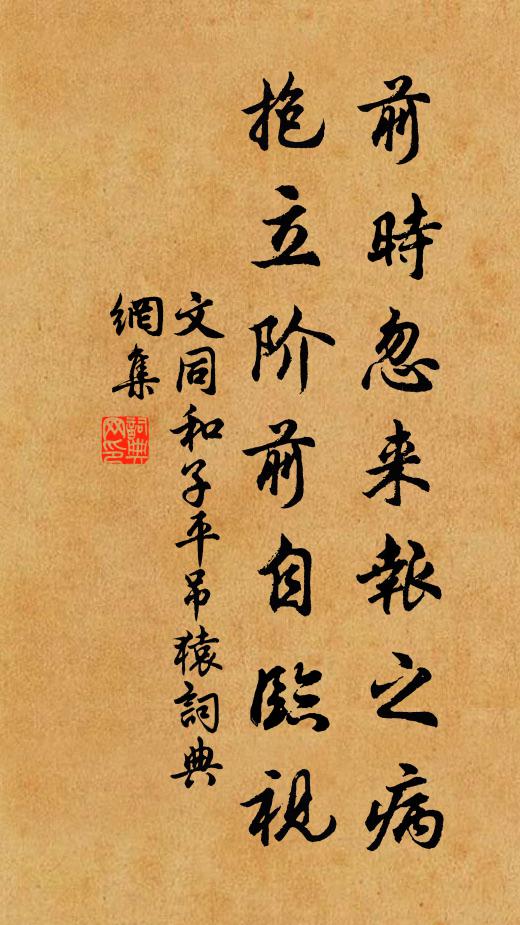 前時忽来報之病
抱立阶前自臨視
文同和子平吊猿詞典
網集
詞典网印